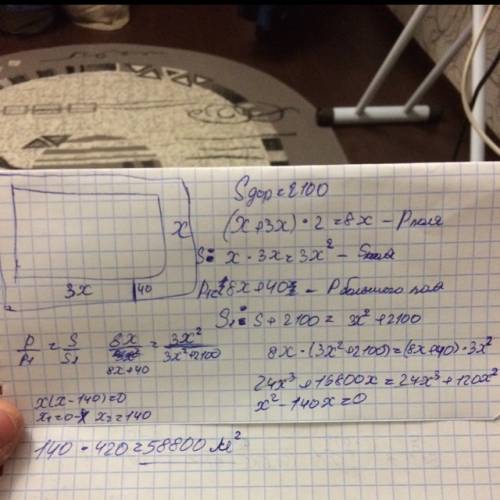 Sдор = 2100
(x+3x)·2=8x – Pполя
x
S= x·3x=3x² –
3x
40
P₁= 8x+40 – P большого поля
S₁= S+2100 = 3x²+2100
P/P₁ = S/S₁ 8x/8x+40 = 3x²/3x²+2100
8x·(3x²+2100)=(8x+40)·3x²
24x³+16800x=24x³+120x²
x(x-140)=0
x²-140x=0
x₁=0 x₂=140
140·420=58800 м²